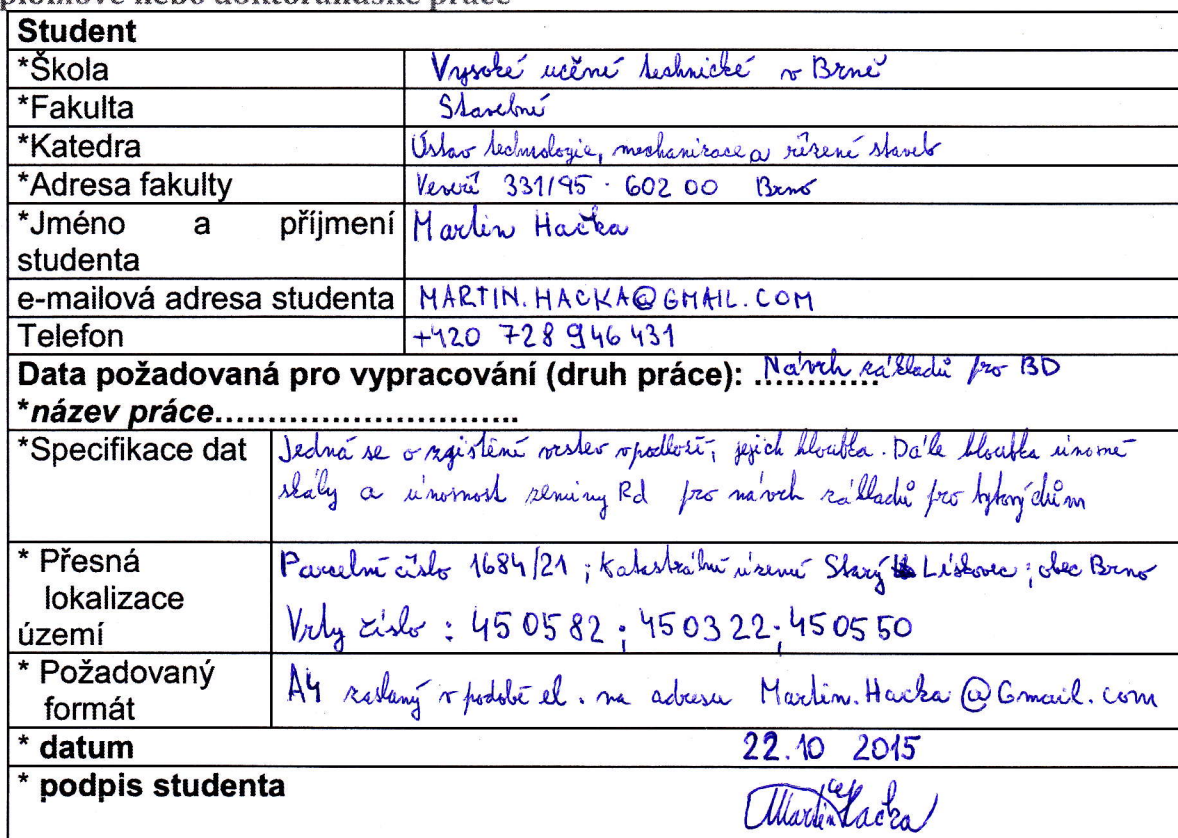 diplomové nebo doktorandské práce
Student
*Škola Vysoké učení technické v Brně
*Fakulta Stavební
*Katedra Ústav technologie, mechanizace a řízení staveb
*Adresa fakulty Veveří 331/95 · 602 00 Brno
*Jméno a příjmení Martin Hačka
studenta
e-mailová adresa studenta MARTIN.HACKA@GMAIL.COM
Telefon +420 728 946 431
Data požadovaná pro vypracování (druh práce): ............ Návrh základů pro BD
*název práce.............................
*Specifikace dat Jedná se o zjištění vrstev v podloží, jejich hloubka. Dále hloubka únosné
skály a únosnost zeminy Rd pro návrh základů pro bytový dům
* Přesná Parcelní číslo 1684/21 ; Katastrální území Starý Lískovec ; obec Brno
lokalizace
území Vrty číslo : 450582 ; 450322 ; 450550
* Požadovaný
formát A4 zaslaný v podobě el. na adresu Martin.Hacka@Gmail.com
* datum 22.10 2015
* podpis studenta Martin Hačka